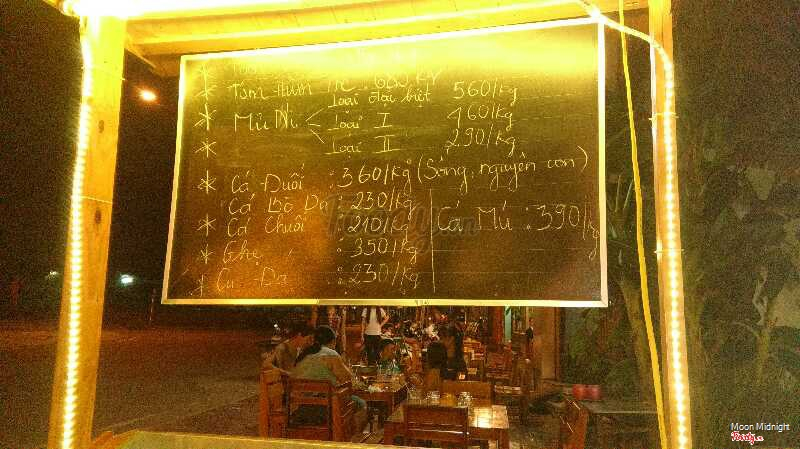 * Tôm
* Tôm Hùm Tre 680/kg
Loại đặc biệt 560/kg
* Mủ Ni Loại I 460/kg
* Loại II 290/kg
* Cá Đuối : 360/kg (Sống, nguyên con)
Cá Bò Da : 230/kg
* Cá Chuối : 210/kg
Cá Mú : 390/kg
* Ghẹ : 350/kg
* Cu Đá : 230/kg
Moon Midnight
Foody.vn